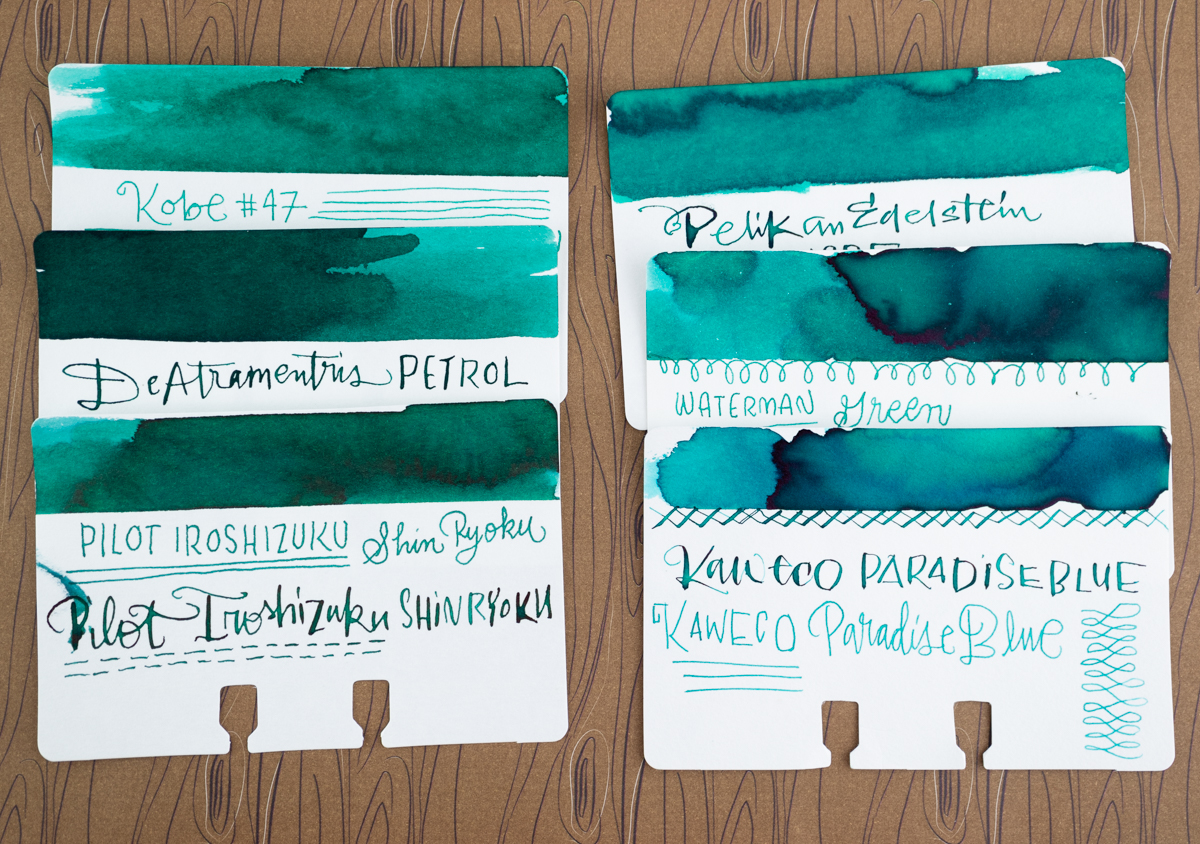 Kobe #47
DeAtramentris PETROL
PILOT IROSHIZUKU Shin Ryoku
Pilot Iroshizuku SHINRYOKU
Pelikan Edelstein
WATERMAN Green
KAWECO PARADISE BLUE
KAWECO Paradise Blue